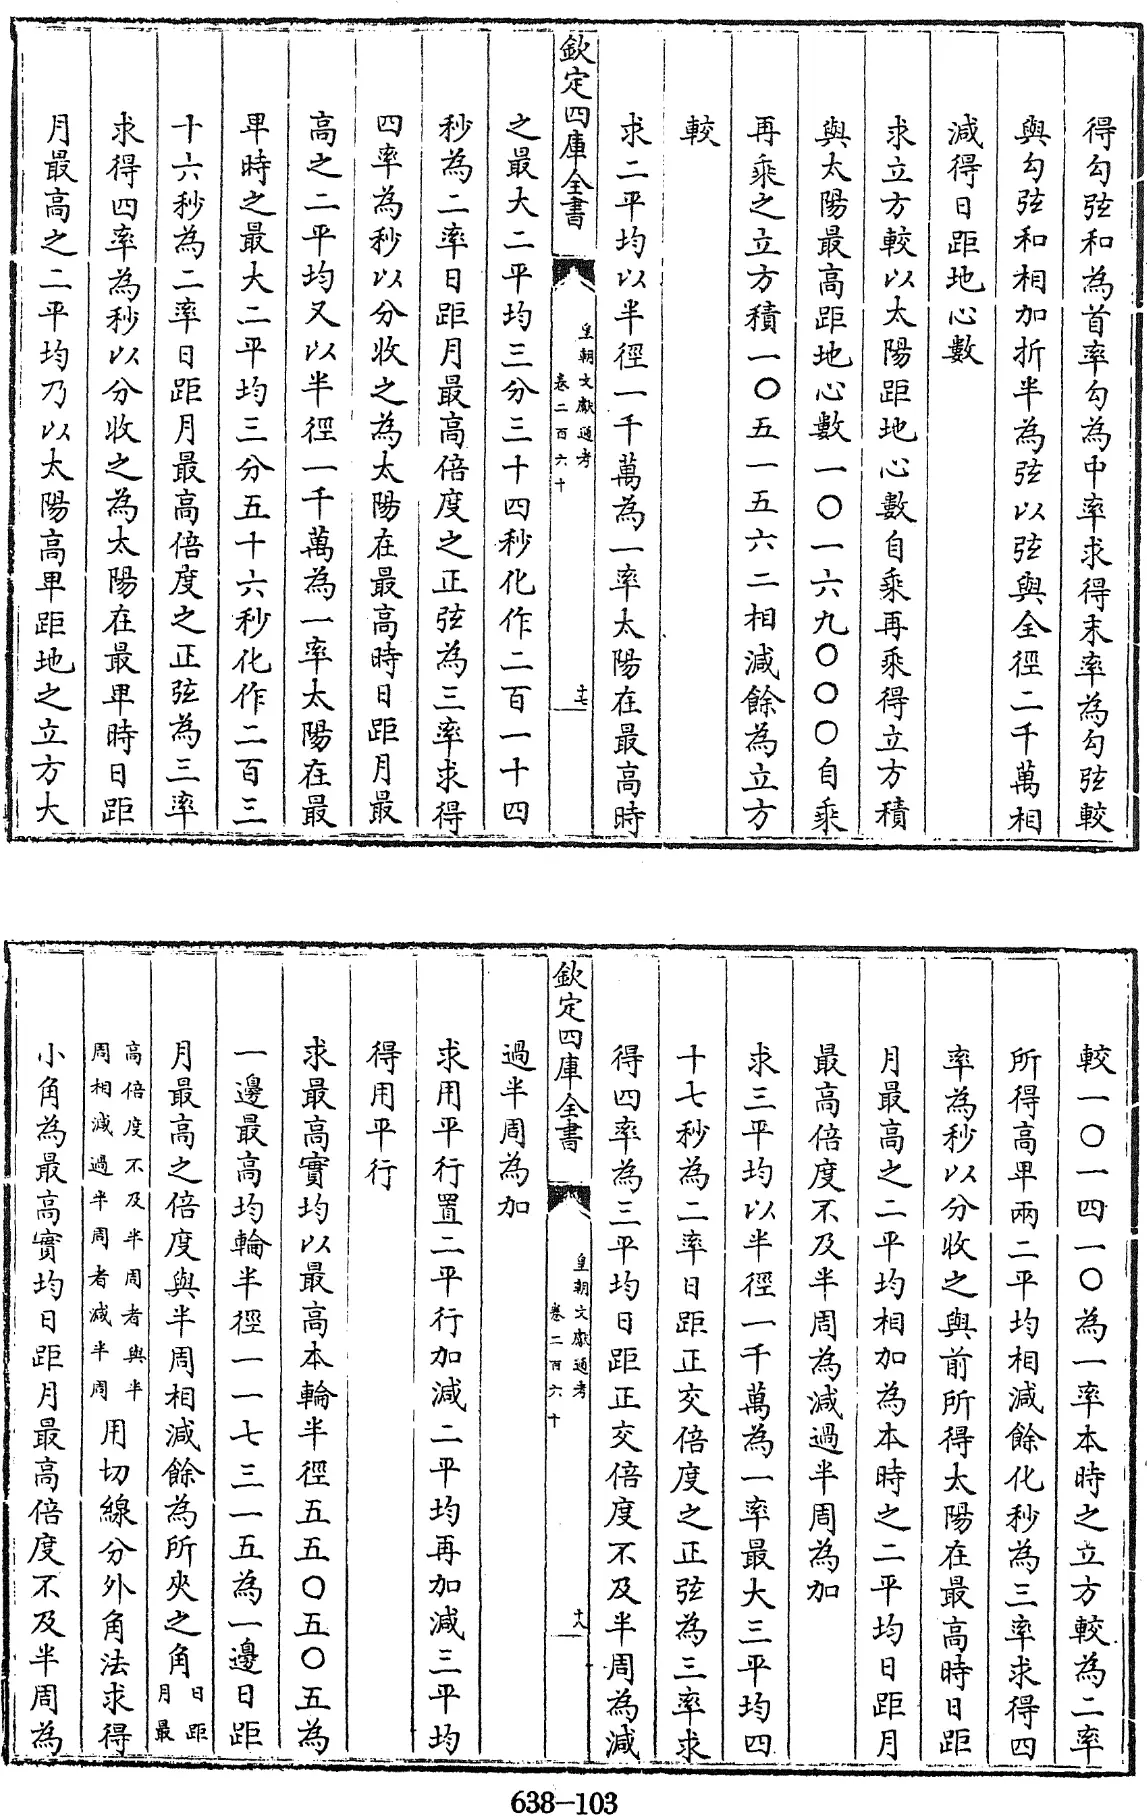 得勾弦和為首率勾為中率求得末率為勾弦較
與勾弦和相加折半為弦以弦與全徑二千萬相
減得日距地心數
求立方較以太陽距地心數自乘再乘得立方積
與太陽最高距地心數一〇一六九〇〇〇自乘
再乘之立方積一〇五一五六二相減餘為立方
較
求二平均以半徑一千萬為一率太陽在最高時
欽定四庫全書
皇朝文獻通考
卷二百六十
十七
之最大二平均三分三十四秒化作二百一十四
秒為二率日距月最高倍度之正弦為三率求得
四率為秒以分收之為太陽在最高時日距月最
高之二平均又以半徑一千萬為一率太陽在最
卑時之最大二平均三分五十六秒化作二百三
十六秒為二率日距月最高倍度之正弦為三率
求得四率為秒以分收之為太陽在最卑時日距
月最高之二平均乃以太陽高卑距地之立方大
較一〇一四一〇為一率本時之立方較為二率
所得高卑兩二平均相減餘化秒為三率求得四
率為秒以分收之與前所得太陽在最高時日距
月最高之二平均相加為本時之二平均日距月
最高倍度不及半周為減過半周為加
求三平均以半徑一千萬為一率最大三平均四
十七秒為二率日距正交倍度之正弦為三率求
得四率為三平均日距正交倍度不及半周為減
欽定四庫全書
皇朝文獻通考
卷二百六十
十八
過半周為加
求用平行置二平行加減二平均再加減三平均
得用平行
求最高實均以最高本輪半徑五五〇五〇五為
一邊最高均輪半徑一一七三一五為一邊日距
月最高之倍度與半周相減餘為所夾之角日距月最
高倍度不及半周者與半周相減過半周者減半周用切線分外角法求得
小角為最高實均日距月最高倍度不及半周為
638-103